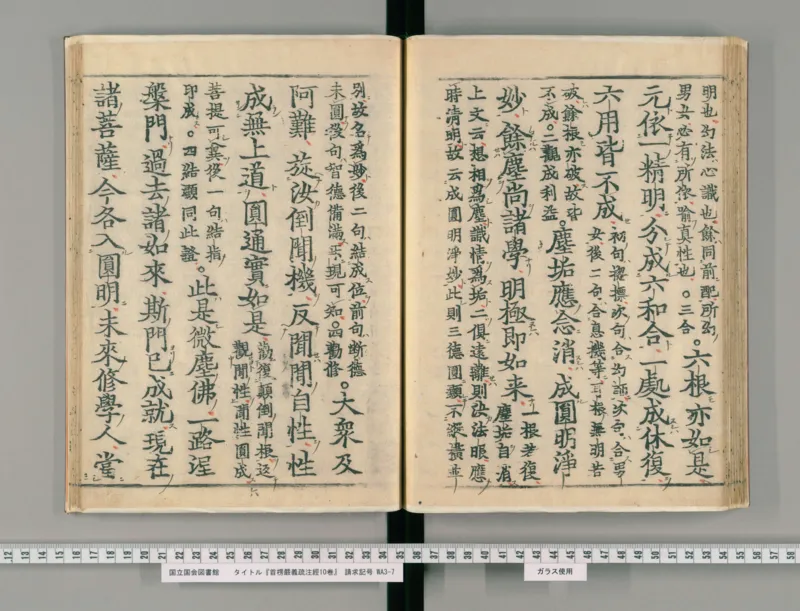 明也幻法心識也餘同前配所幻
男女必有所依喻真性也。三合
。六根亦如是
元依一精明分成六和合一處成休復
六用皆不成
初句次句合幻師次句合男
女後二句合息機等一根無明若
破餘根亦破故云
不成。二觀成利益
。塵垢應念消成圓明淨
妙餘塵尚諸學明極即如來
一根若復
塵垢自消
上文云想相爲塵識情爲垢二俱遠離則汝法眼應
時清明故云成圓明淨妙此則三德圓顯不縱橫並
別故名爲妙後二句結成位前句斷德
未圓後句智德備滿現可知。四勸修
。大衆及
阿難旋汝倒聞機反聞聞自性性
成無上道圓通實如是
勸復顛倒聞根返
觀聞性聞性圓成
菩提可冀後一句結指
印成。四結顯同此證
。此是微塵佛一路涅
槃門過去諸如來斯門已成就現在
諸菩薩今各入圓明未來修學人當
国立国会図書館 タイトル『首楞嚴義疏注經10巻』 請求記号 WA3-7
ガラス使用
12 13 14 15 16 17 18 19 20 21 22 23 24 25 26 27 28 29 30 31 32 33 34 35 36 37 38 39 40 41 42 43 44 45 46 47 48 49 50 51 52 53 54 55 56 57 58